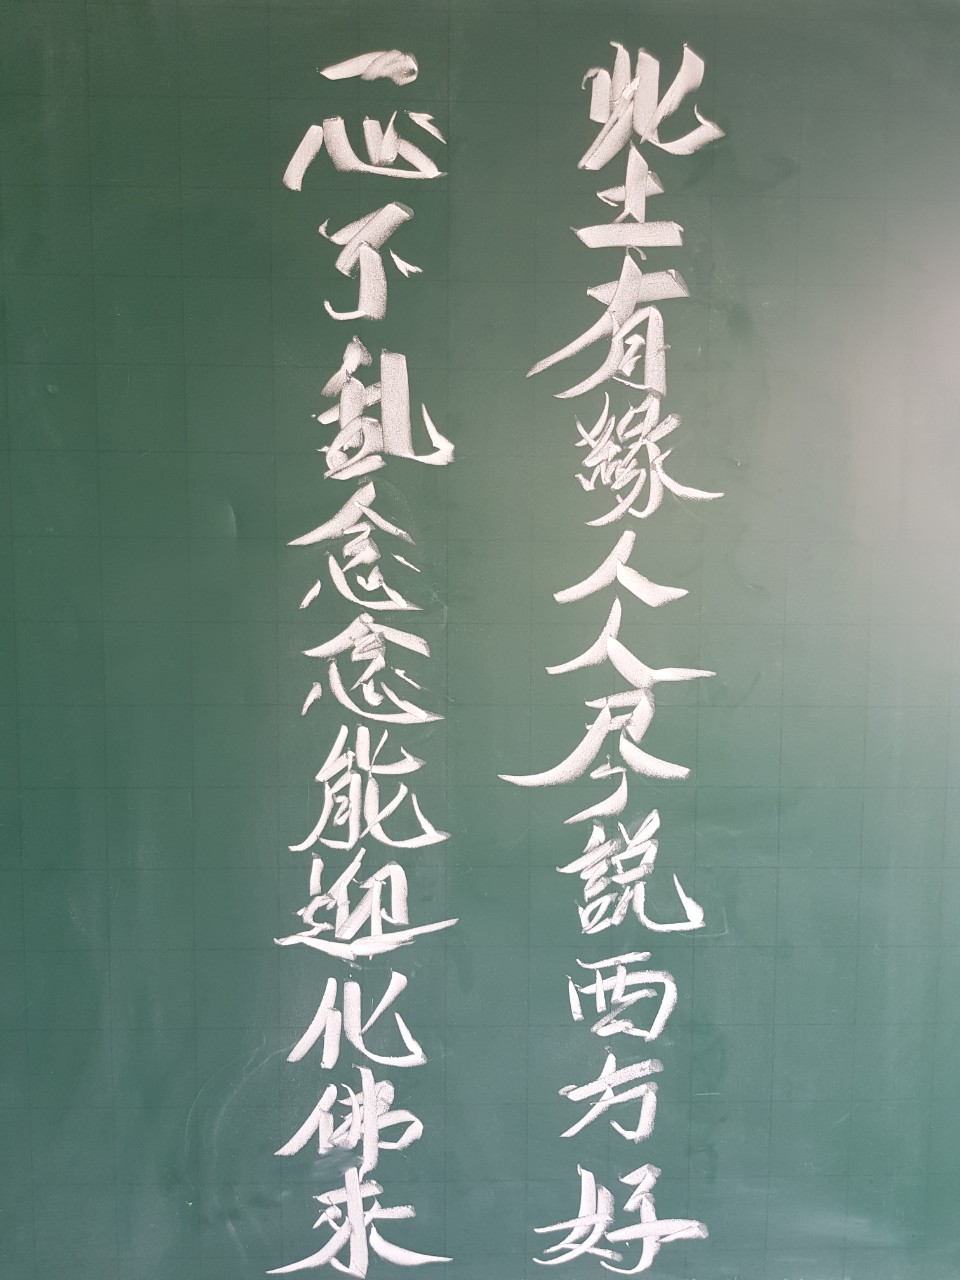 此土有緣人人尽説西方好
一心不乱念念能迎化佛來